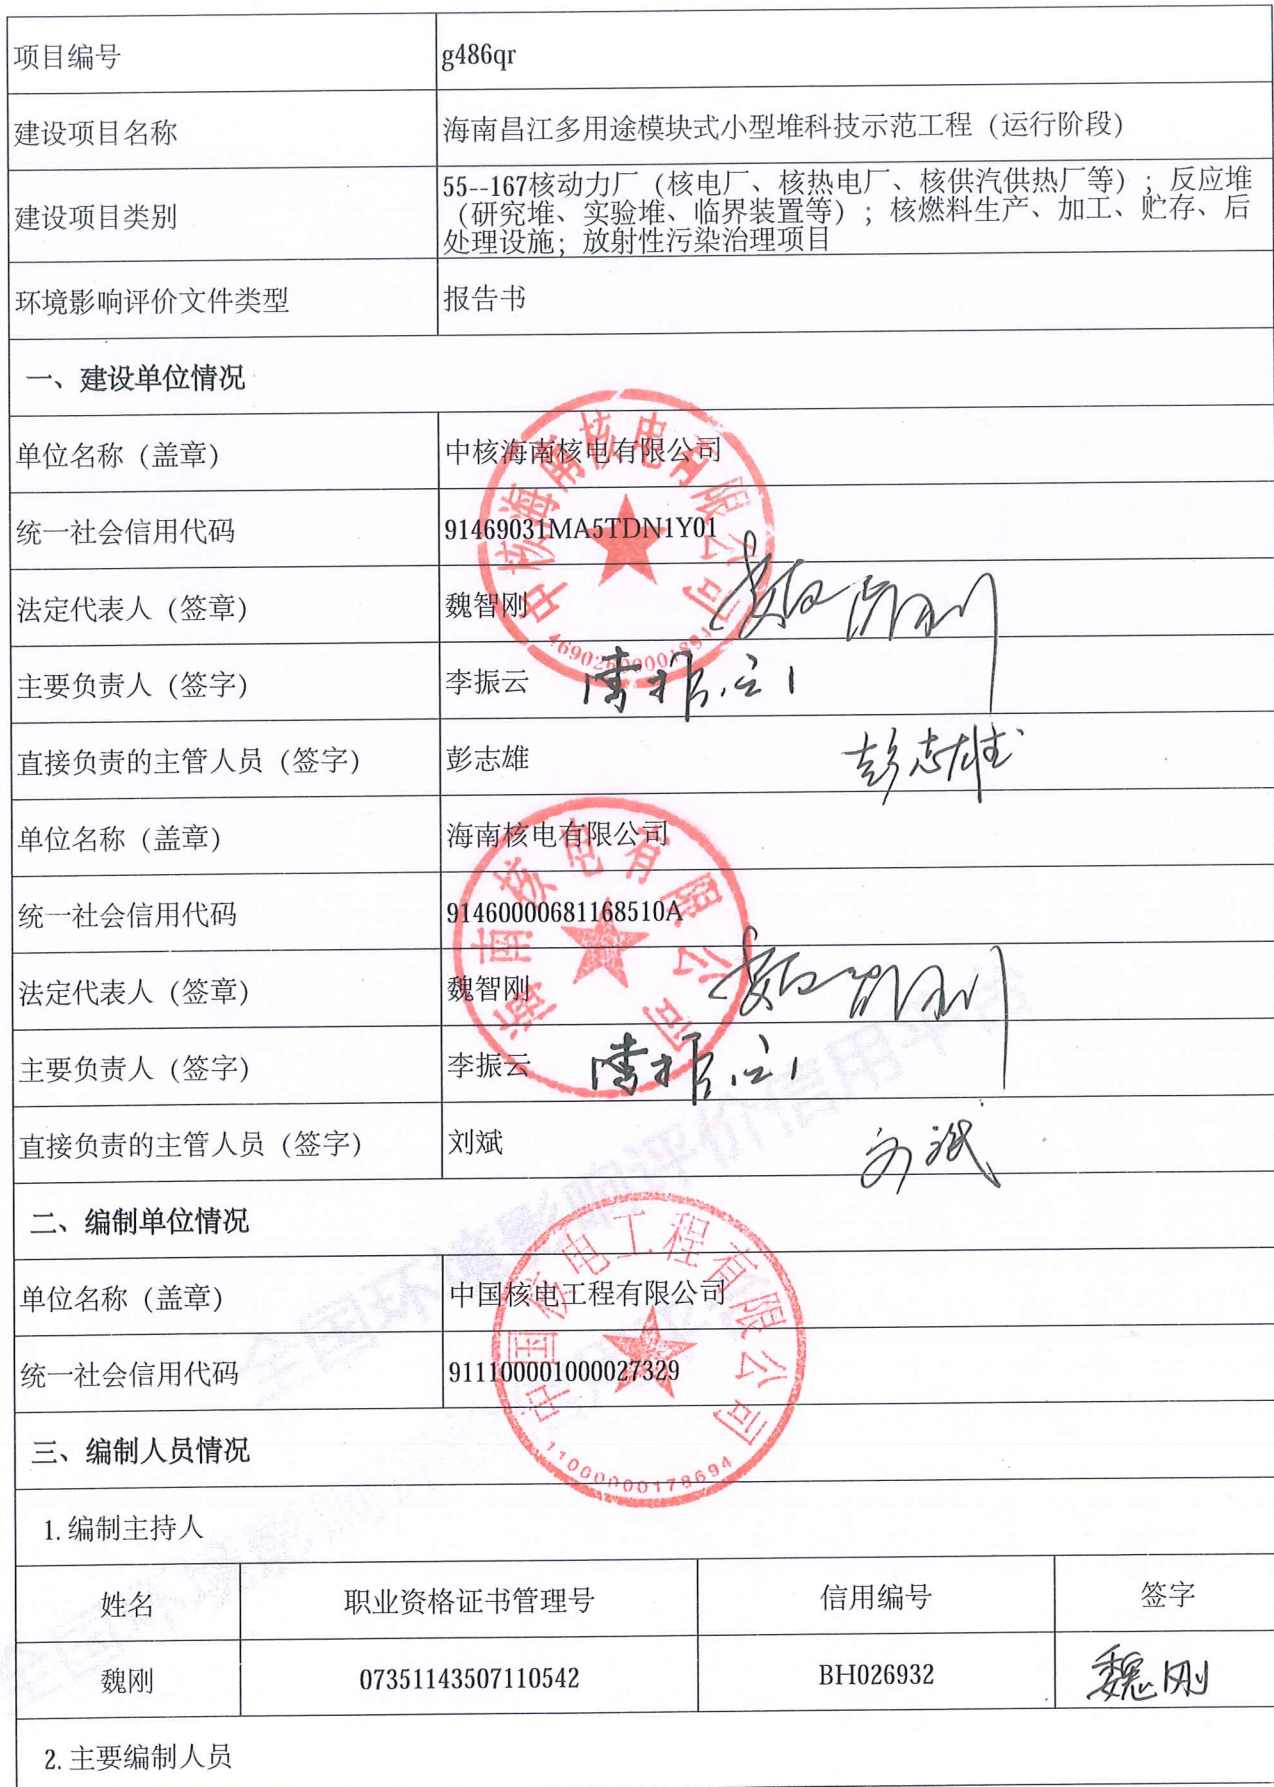 项目编号 g486qr
建设项目名称 海南昌江多用途模块式小型堆科技示范工程（运行阶段）
建设项目类别 55--167核动力厂（核电厂、核热电厂、核供汽供热厂等）；反应堆
（研究堆、实验堆、临界装置等）；核燃料生产、加工、贮存、后
处理设施；放射性污染治理项目
环境影响评价文件类型 报告书
一、建设单位情况
单位名称（盖章） 中核海南核电有限公司
统一社会信用代码 91469031MA5TDN1Y01
法定代表人（签章） 魏智刚 魏智刚
主要负责人（签字） 李振云 李振云
直接负责的主管人员（签字） 彭志雄 彭志雄
中核海南核电有限公司
单位名称（盖章） 海南核电有限公司
统一社会信用代码 91460000681168510A
法定代表人（签章） 魏智刚 魏智刚
主要负责人（签字） 李振云 李振云
直接负责的主管人员（签字） 刘斌 刘斌
海南核电有限公司
二、编制单位情况
单位名称（盖章） 中国核电工程有限公司
统一社会信用代码 911100001000027329
中国核电工程有限公司
11000000178694
三、编制人员情况
1.编制主持人
姓名 职业资格证书管理号 信用编号 签字
魏刚 07351143507110542 BH026932 魏刚
2.主要编制人员
全国环境影响评价信用平台